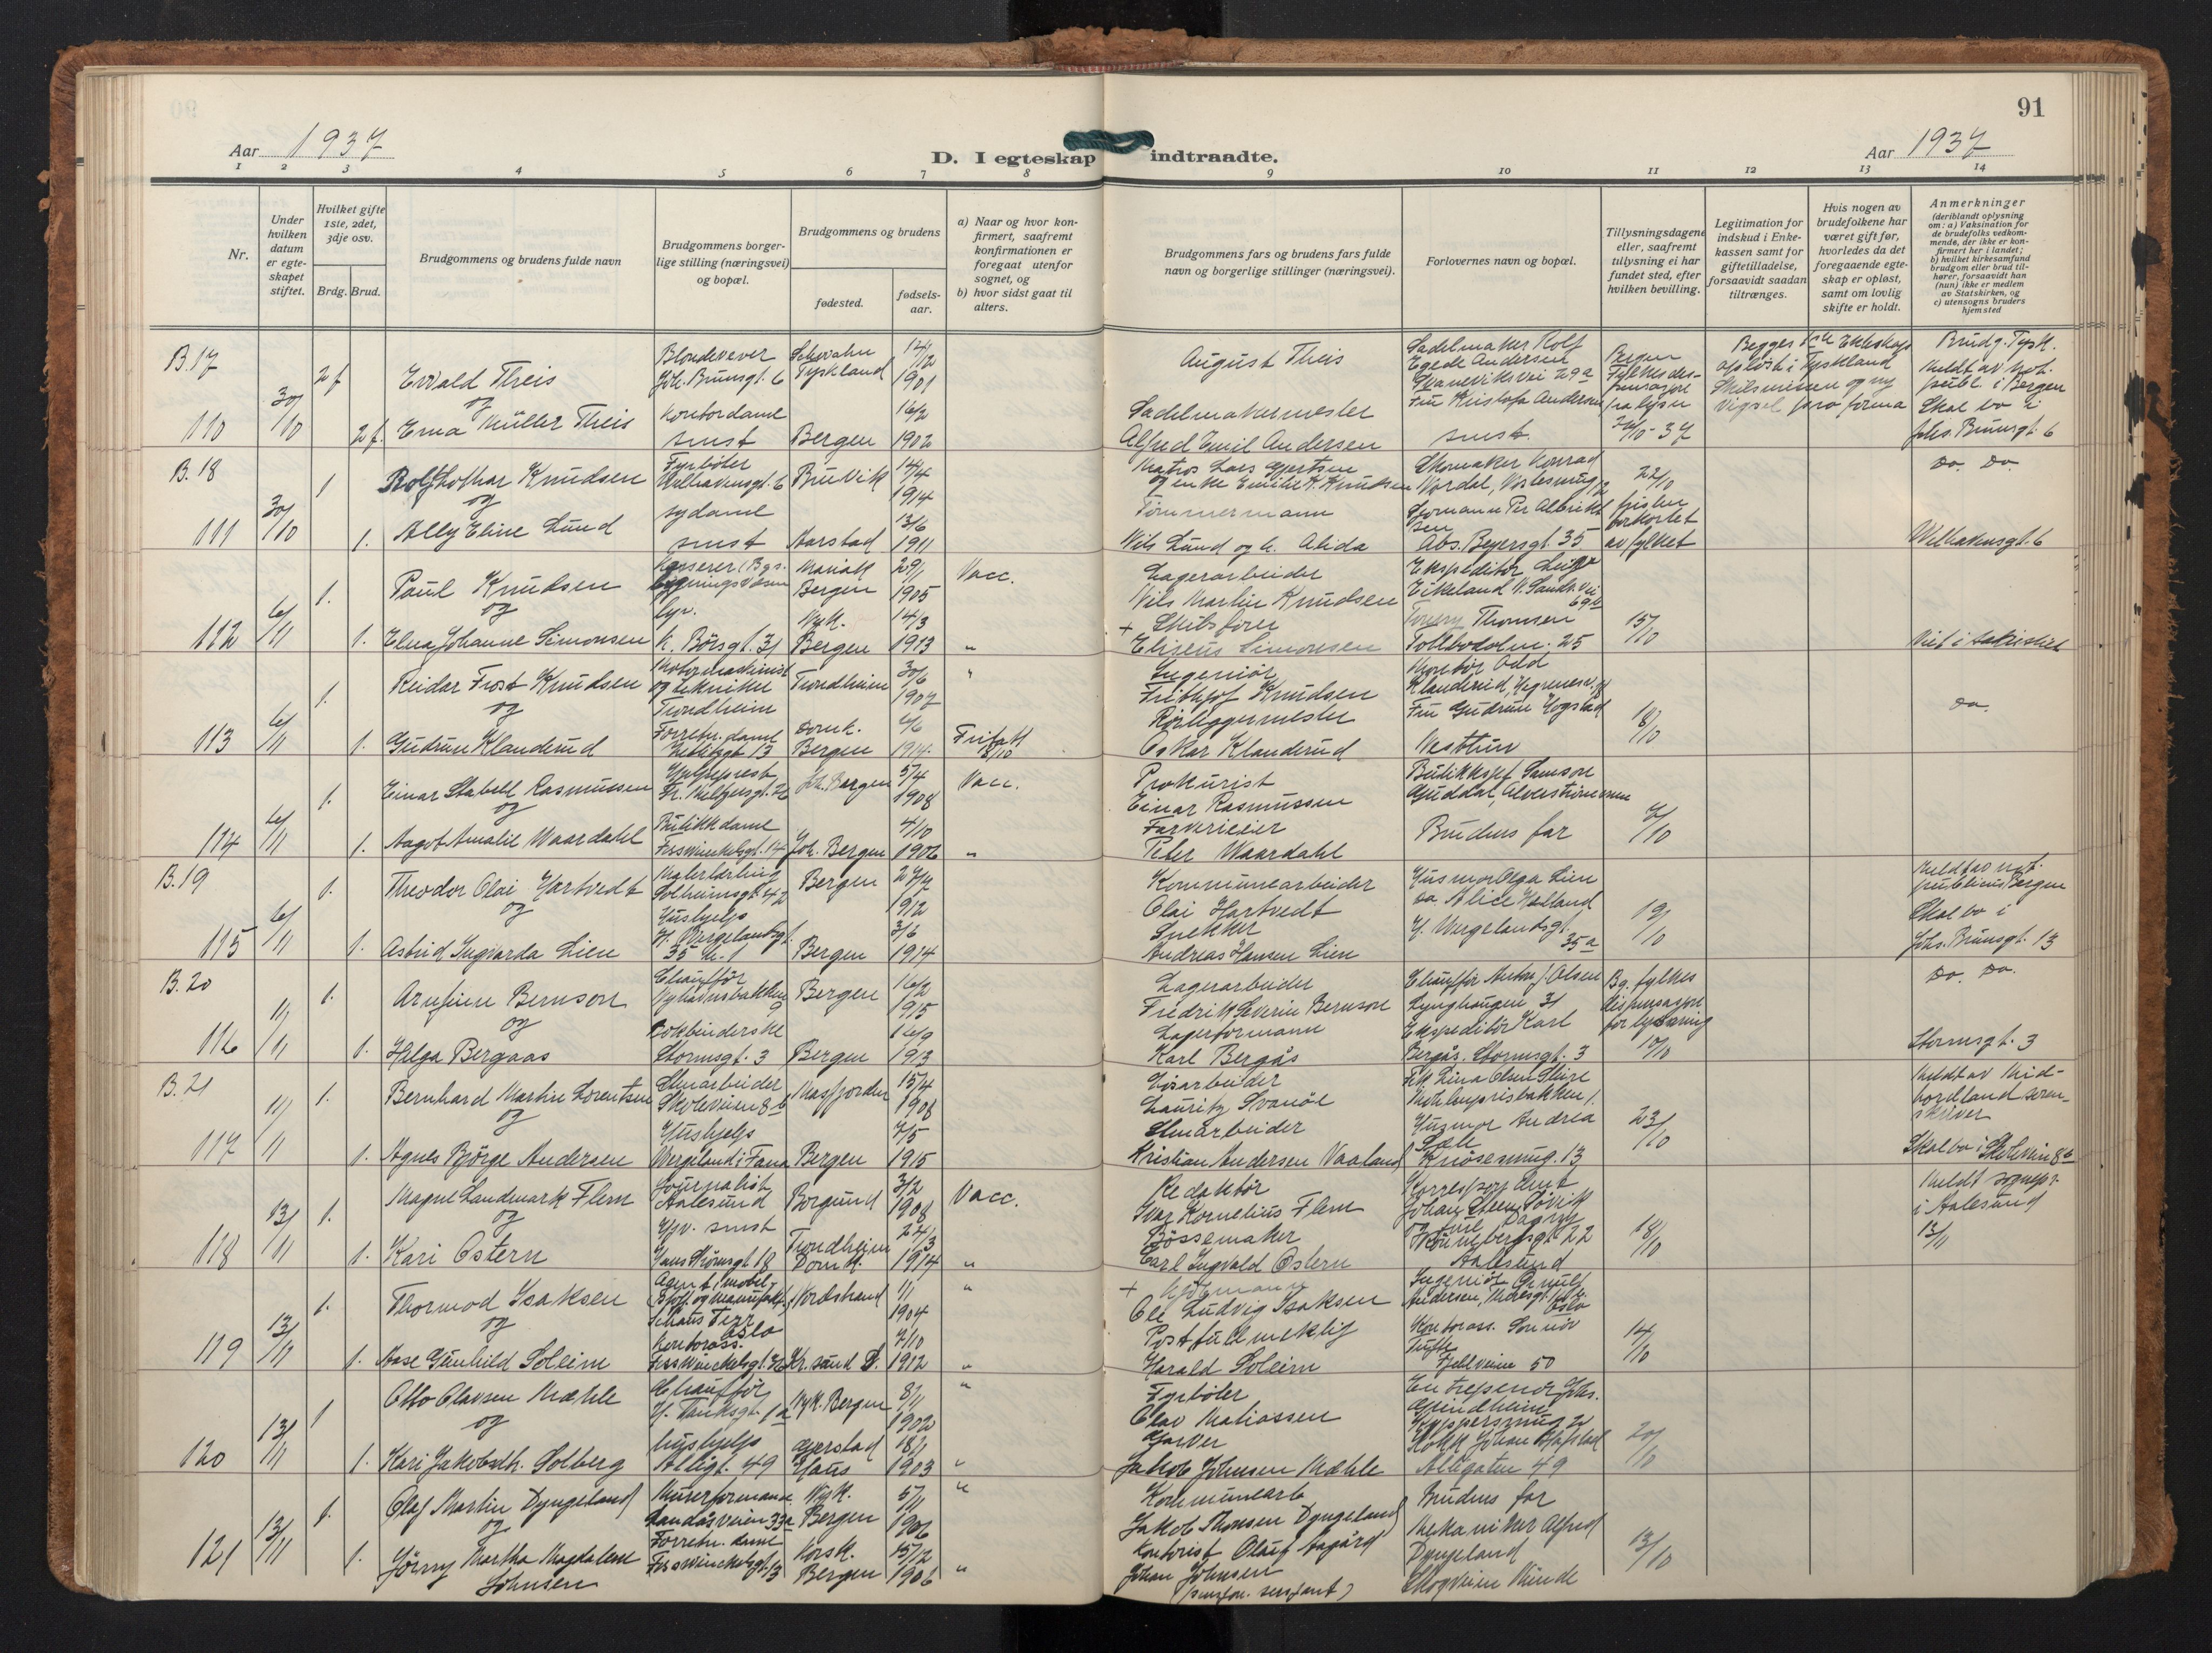 91
Aar 1937
D. I egteskap indtraadte.
Aar 1937
1 2 3 4 5 6 7 8 9 10 11 12 13 14
Nr.
Under hvilken datum er egteskapet stiftet.
Hvilket gifte 1ste, 2det, 3dje osv.
Brdg. Brud.
Brudgommens og brudens fulde navn
Brudgommens borgerlige stilling (næringsvei) og bopæl.
Brudgommens og brudens
fødested.
fødselsaar.
a) Naar og hvor konfirmert, saafremt konfirmationen er foregaat utenfor sognet, og
b) hvor sidst gaat til alters.
Brudgommens fars og brudens fars fulde navn og borgerlige stillinger (næringsvei).
Forlovernes navn og bopæl.
Tillysningsdagene eller, saafremt tillysning ei har fundet sted, efter hvilken bevilling.
Legitimation for indskud i Enkekassen samt for giftetilladelse, forsaavidt saadan tiltrænges.
Hvis nogen av brudefolkene har været gift før, hvorledes da det foregaaende egteskap er opløst, samt om lovlig skifte er holdt.
Anmerkninger
(deriblandt oplysning om: a) Vaksination for de brudefolks vedkommende, der ikke er konfirmert her i landet;
b) hvilket kirkesamfund brudgom eller brud tilhører, forsaavidt han (hun) ikke er medlem av Statskirken, og
c) utensogns bruders hjemsted
B. 17
110
30/10
2 f
Ewald Theis
og
2 f. Erna Müller Theis
Blondevever
Joh. Brunsgt. 6
Kontordame
smst
Tyskland
14/12 1901
Bergen
16/2 1902
August Theis
Sadelmakermester
Alfred Emil Andersen
Sadelmaker Rolf
Egede Andersen
Skaneviksvei 29a
Fru Kristofa Andersen
smst.
Bergen
22/10-37
Begges 1ste Ekteskap
opløst i Tyskland
Skilsmissen og ny
vigsel pro forma
Brudg. Tysk.
Meldt av not.
publ. i Bergen
Skal bo i
Johs. Brunsgt. 6
B. 18
111
30/10
1
Rolf Lothar Knudsen
og
1. Ally Eline Lund
Fyrbøter
Welhavensgt. 6
sydame
smst
Bruvik
14/4 1914
Aarstad
13/6 1911
Matros Lars Gjertsen
og enke Emilie K. Knudsen
Tømmermann
Nils Lund og h. Alida
Skomaker Konrad
Nordal,
Formann Per Albrikt
sen
Abs. Beyersgt. 35
22/10
forkortet
av fylket
do. do.
Welhavensgt. 6
112
6/11
1.
Paul Knudsen
og
1. Elna Johanne Simonsen
Kasserer
K. Børsgt. 31
Mariak
Bergen
29/1 1905
Nyk.
Bergen
14/3 1913
Vacc.
"
Lagerarbeider
Nils Martin Knudsen
+ Skibsfører
Eliseus Simonsen
Ekspeditør
Eikeland N. Sandv. vei
69 b
Thomsen
Tollbodalm. 25
15/10
Viet i sakristiet
113
6/11
1.
Reidar Frost Knudsen
og
1. Gudrun Klanderud
og tekniker
Trondheim
Forretn. dame
Trondheim
30/6 1907
Domk.
Bergen
4/6 1914.
"
Ingeniør
Frithjof Knudsen
Rørleggermester
Oskar Klanderud
Kontor Odd
Klanderud,
Fru Gudrun Hogstad
Nesttun
18/10
do.
114
6/11
1.
Einar Stabell Rasmussen
og
1. Aagot Amalie Waardahl
Hjelpeprest
Fr. Meltzersgt. 26
Butikkdame
Fosswinckelsgt. 14
Joh. Bergen
5/4 1908
Joh. Bergen
4/10 1906
Vacc.
"
Prokurist
Einar Rasmussen
Farverieier
Peter Waardahl
Guddal,
Brudens far
7/10
B. 19
115
6/11
1.
Theodor Olai Hartvedt
og
1. Astrid Ingvarda Lien
Malerlærling
Solheimsgt. 42
Hushjelp
H. Wergelandsgt.
Bergen
27/7 1912
Bergen
3/6 1914
Kommunearbeider
Olai Hartvedt
Snekker
Andreas Hansen Lien
Husmor Olga Lien
do Alice Halland
H. Wergelandsgt.
35a
19/10
Meldt av not.
publicus Bergen
Skal bo i
Johs. Brunsgt. 13
B. 20
116
11/11
1.
Arnfinn Bernson
og
1. Helga Bergaas
Chauffør
Nyhavnsbakken
9
Bokbinderske
Stormsgt. 3
Bergen
16/2 1915
Bergen
16/9 1913
Lagerarbeider
Fredrik Severin Bernson
Lagerformann
Karl Bergås
Chauffør Anton J Olsen
Lynghaugen 31
Ekspeditør Karl
Bergås. Stormsgt. 3
Bg. fylkes
dispensasjon
for lysning
10/10
do. do.
Stormsgt. 3
B. 21
117
11/11
1.
Bernhard Martin Lorentsen
og
1. Agnes Bjørge Andersen
Skoleveien 8b
Hushjelp
Wergeland i Fana
Masfjorden
15/4 1908
Bergen
7/5 1915
Løsarbeider
Lauritz Svanøe
Kristian Andersen Vaaland
Frk Lina Olsen
Møhlenprisbakken 1.
Husmor Andrea
Sæle
Knøsesmug. 13
23/10
Meldt av Mid-
hordland soren-
skriver
Skal bo i Skoleveien 8b
118
13/11
1.
Magne Landmark Flem
og
1. Kari Østern
Journalist
Aalesund
Hjv. smst
Hans Strømsgt 18
Borgund
3/2 1908
Trondheim
Domk.
24/3 1914
Vacc.
"
Redaktør
Ivar Kornelius Flem
Bøssemaker
Carl Ingvald Østern
Korrespondent
Johan Steen Løvik
og frue Dagny
Rønnebergsgt 22
Aalesund
18/10
Meldt sognepr.
i Aalesund
13/11
119
13/11
1.
Thormod Isaksen
og
1. Aase Gunhild Soleim
Oslo
Kontorass.
Nordstrand
11/11 1904
Kr. sund S.
7/10 1912
"
"
+
Ole Ludvig Isaksen
Postfullmektig
Harald Soleim
Ingeniør Arnulf
Andersen,
Oslo
Kontorass.
Tufte
Fjellveien 50
14/10
120
13/11
1
Otto Olavsen Mæhle
og
1. Kari Jakobsdtr. Solberg
Chauffør
H. Tanksgt. 1a
hushjelp
Allegt. 49
Nyk. Bergen
8/11 1902
Haus
18/1 1903
"
"
Fyrbøter
Olav Matiassen
Garver
Jakob Johnsen Mæhle
Entreprenør Johs.
Grindheim
Kokk Johan
Allegaten 49
20/10
121
13/11
1.
Olaf Martin Dyngeland
og
1. Jørny Martha Magdalene
Johnsen
Murerformann
Landåsveien 33a
Forretn. dame
Fosswinckelsgt. 13
Nyk.
Bergen
5/11 1906
Korsk.
Bergen
15/12 1906
"
"
Kommunearb
Jakob Thomsen Dyngeland
Kontorist Oluf Aagård
Johan Johnsen
(pensjon. sersjant)
Brudens far
Mekaniker Alfred
Dyngeland
Skogveien Minde
13/10